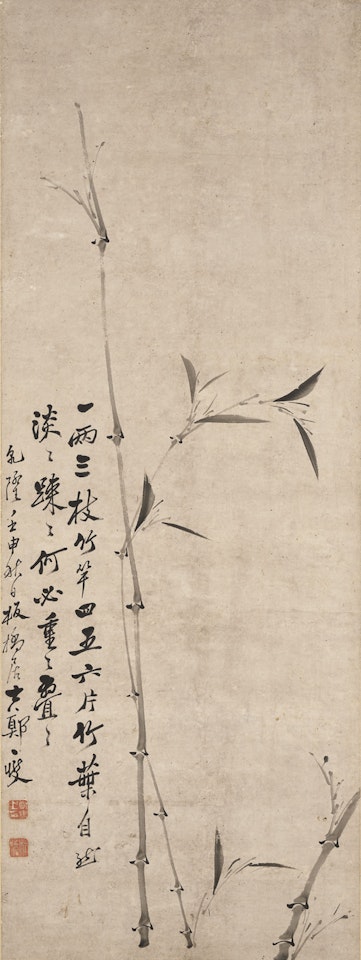 一兩三枝竹竿四五六片竹葉自然
淡〻疎〻何必重〻疊〻
乾隆壬申秋日板橋居士鄭燮